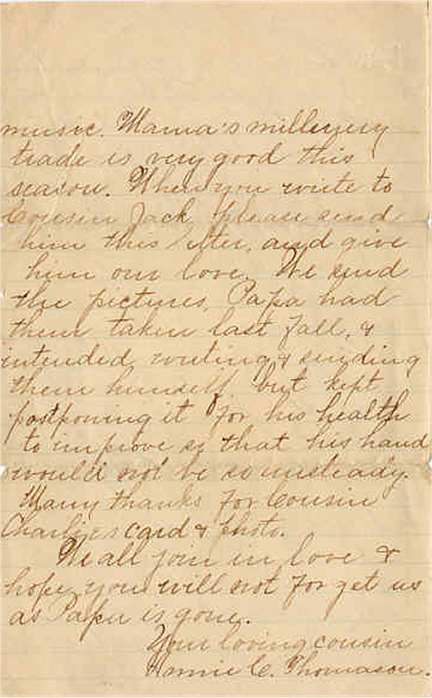 music. Mama's millenery
trade is very good this
season. When you write to
Cousin Jack please send
him this letter, and give
him our love. We send
the pictures, Papa had
them taken last fall, &
intended writing & sending
them himself, but kept
postponing it for his health
to improve so that his hand
would not be so unsteady.
Many thanks for Cousin
Charlie's card & photo.
We all join in love &
hope you will not forget us
as Papa is gone.
Your loving cousin
C. Thomason.